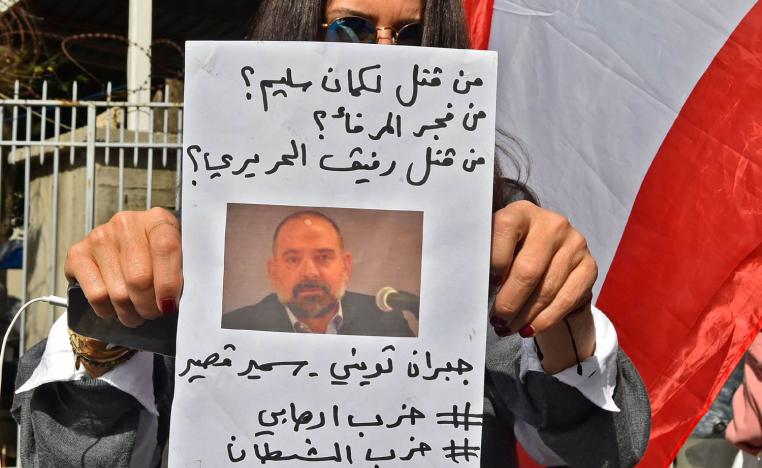 من قتل لكمان سليم؟
من فجر المرفأ؟
من قتل رفيق الحريري؟
جبران تويني - سمير قصير
# حزب ارهابي
# حزب الشيطان